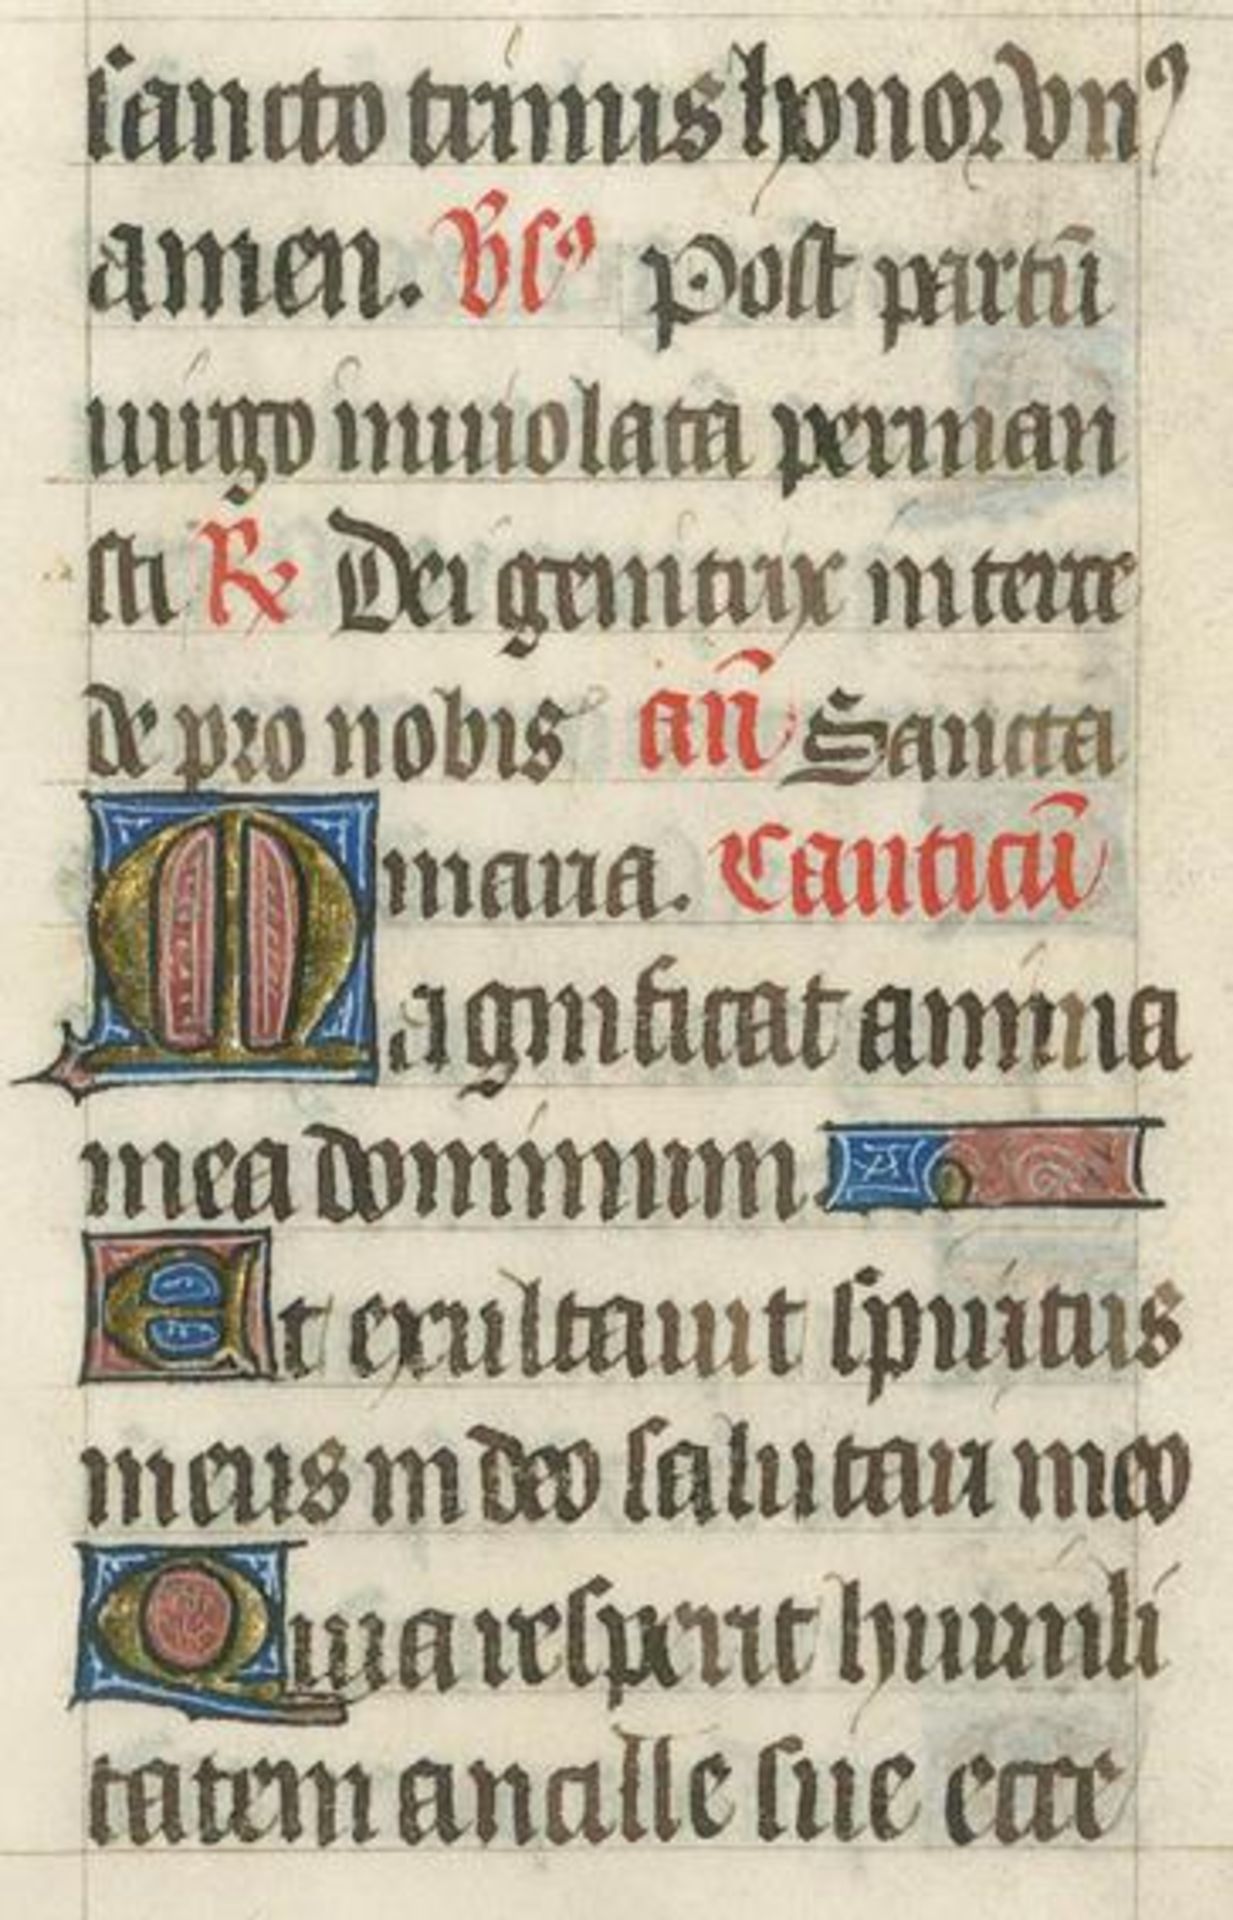 sancto trinus honor vnꝰ
amen. Vs̉ Post partū
uirgo inuiolata perman
sti ℟ Dei genitrix interce
de pro nobis añ Sancta
maria. Canticū
Magnificat anima
mea dominum.
Et exultauit spiritus
meus in deo salutari meo
Quia respexit humili
tatem ancille sue ecce